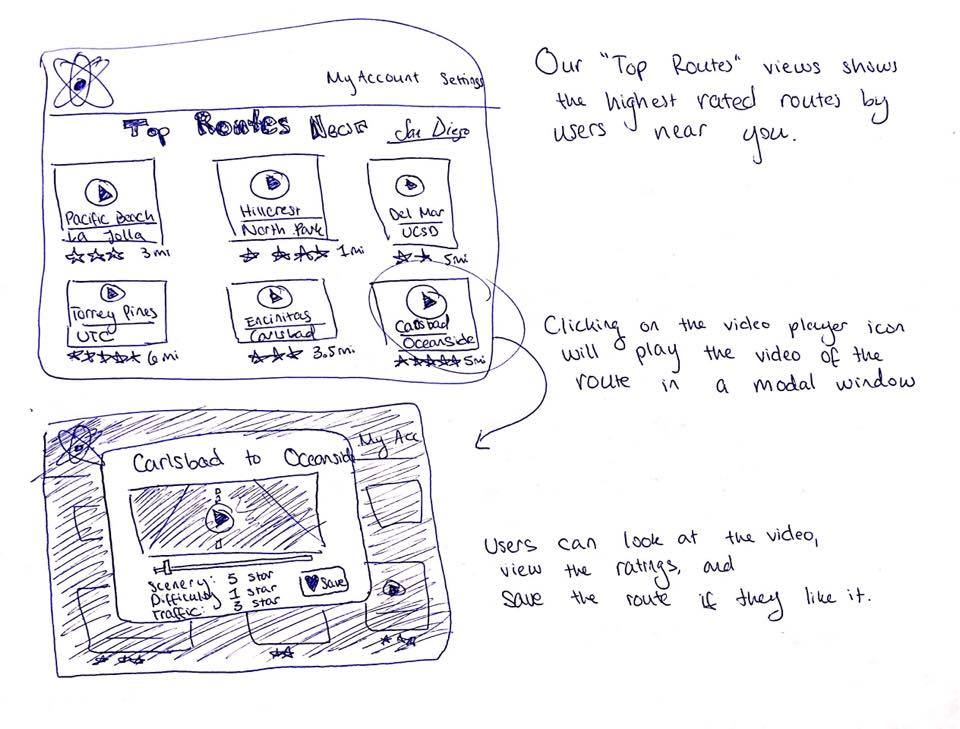 My Account Settings
Top Routes Near San Diego
Pacific Beach
La Jolla
3mi
Hillcrest
North Park
1mi
Del Mar
UCSD
5mi
Torrey Pines
UTC
6mi
Encinitas
Carlsbad
3.5mi
Carlsbad
Oceanside
5mi
Our "Top Routes" views shows
the highest rated routes by
users near you.
Clicking on the video player icon
will play the video of the
route in a modal window
My Acc
Carlsbad to Oceanside
Scenery: 5 star
Difficulty 1 star
Traffic: 3 star
Save
Users can look at the video,
view the ratings, and
save the route if they like it.